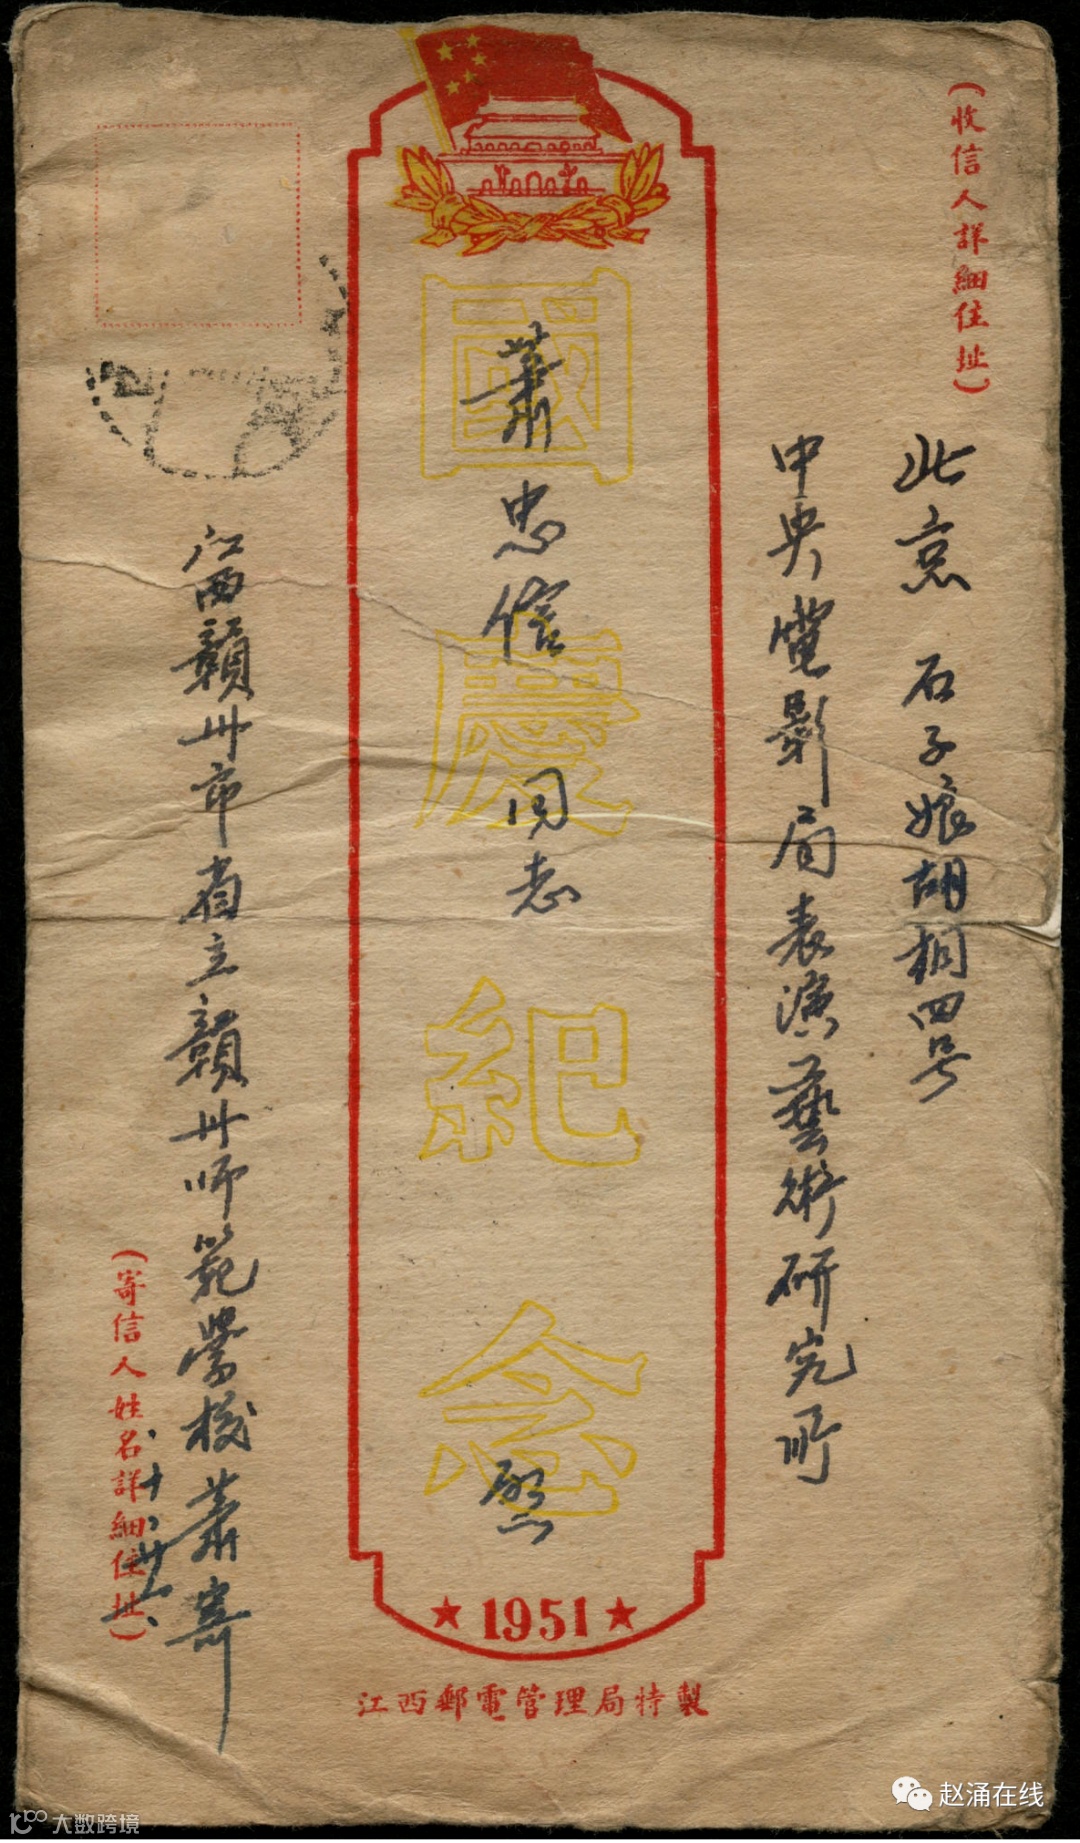 (收信人詳細住址)
北京 石子娘胡桐四号
中央電影局表演藝術研究所
國慶紀念
蕭忠信同志 啓
★1951★
江西贛州市省立贛州师範學校蕭寄
(寄信人姓名詳細住址)
江西郵電管理局特製
赵涌在线
大数跨境